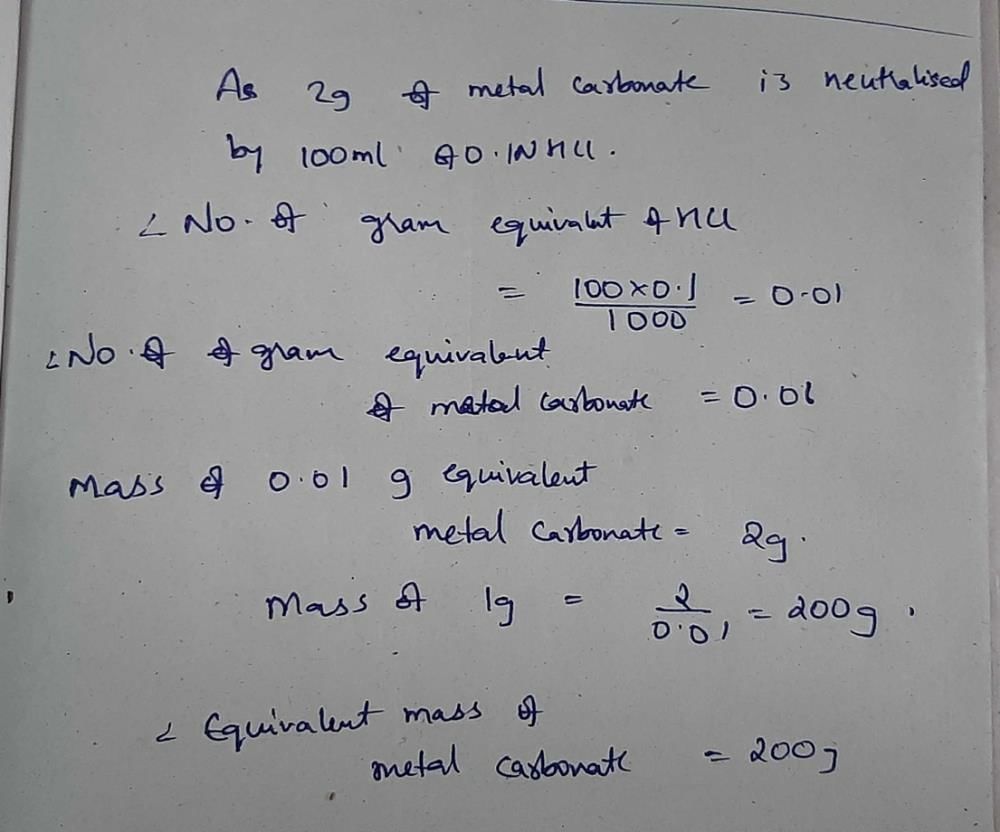 As 2g of metal carbonate is neutralised
by 100ml of 0.1N HCl.
∠ No. of gram equivalent of HCl
= 100×0.1/1000 = 0.01
∠ No. of of gram equivalent
of metal carbonate = 0.01
Mass of 0.01 g equivalent
metal carbonate = 2g.
Mass of 1g = 2/0.01 = 200g.
∠ Equivalent mass of
metal carbonate = 200g